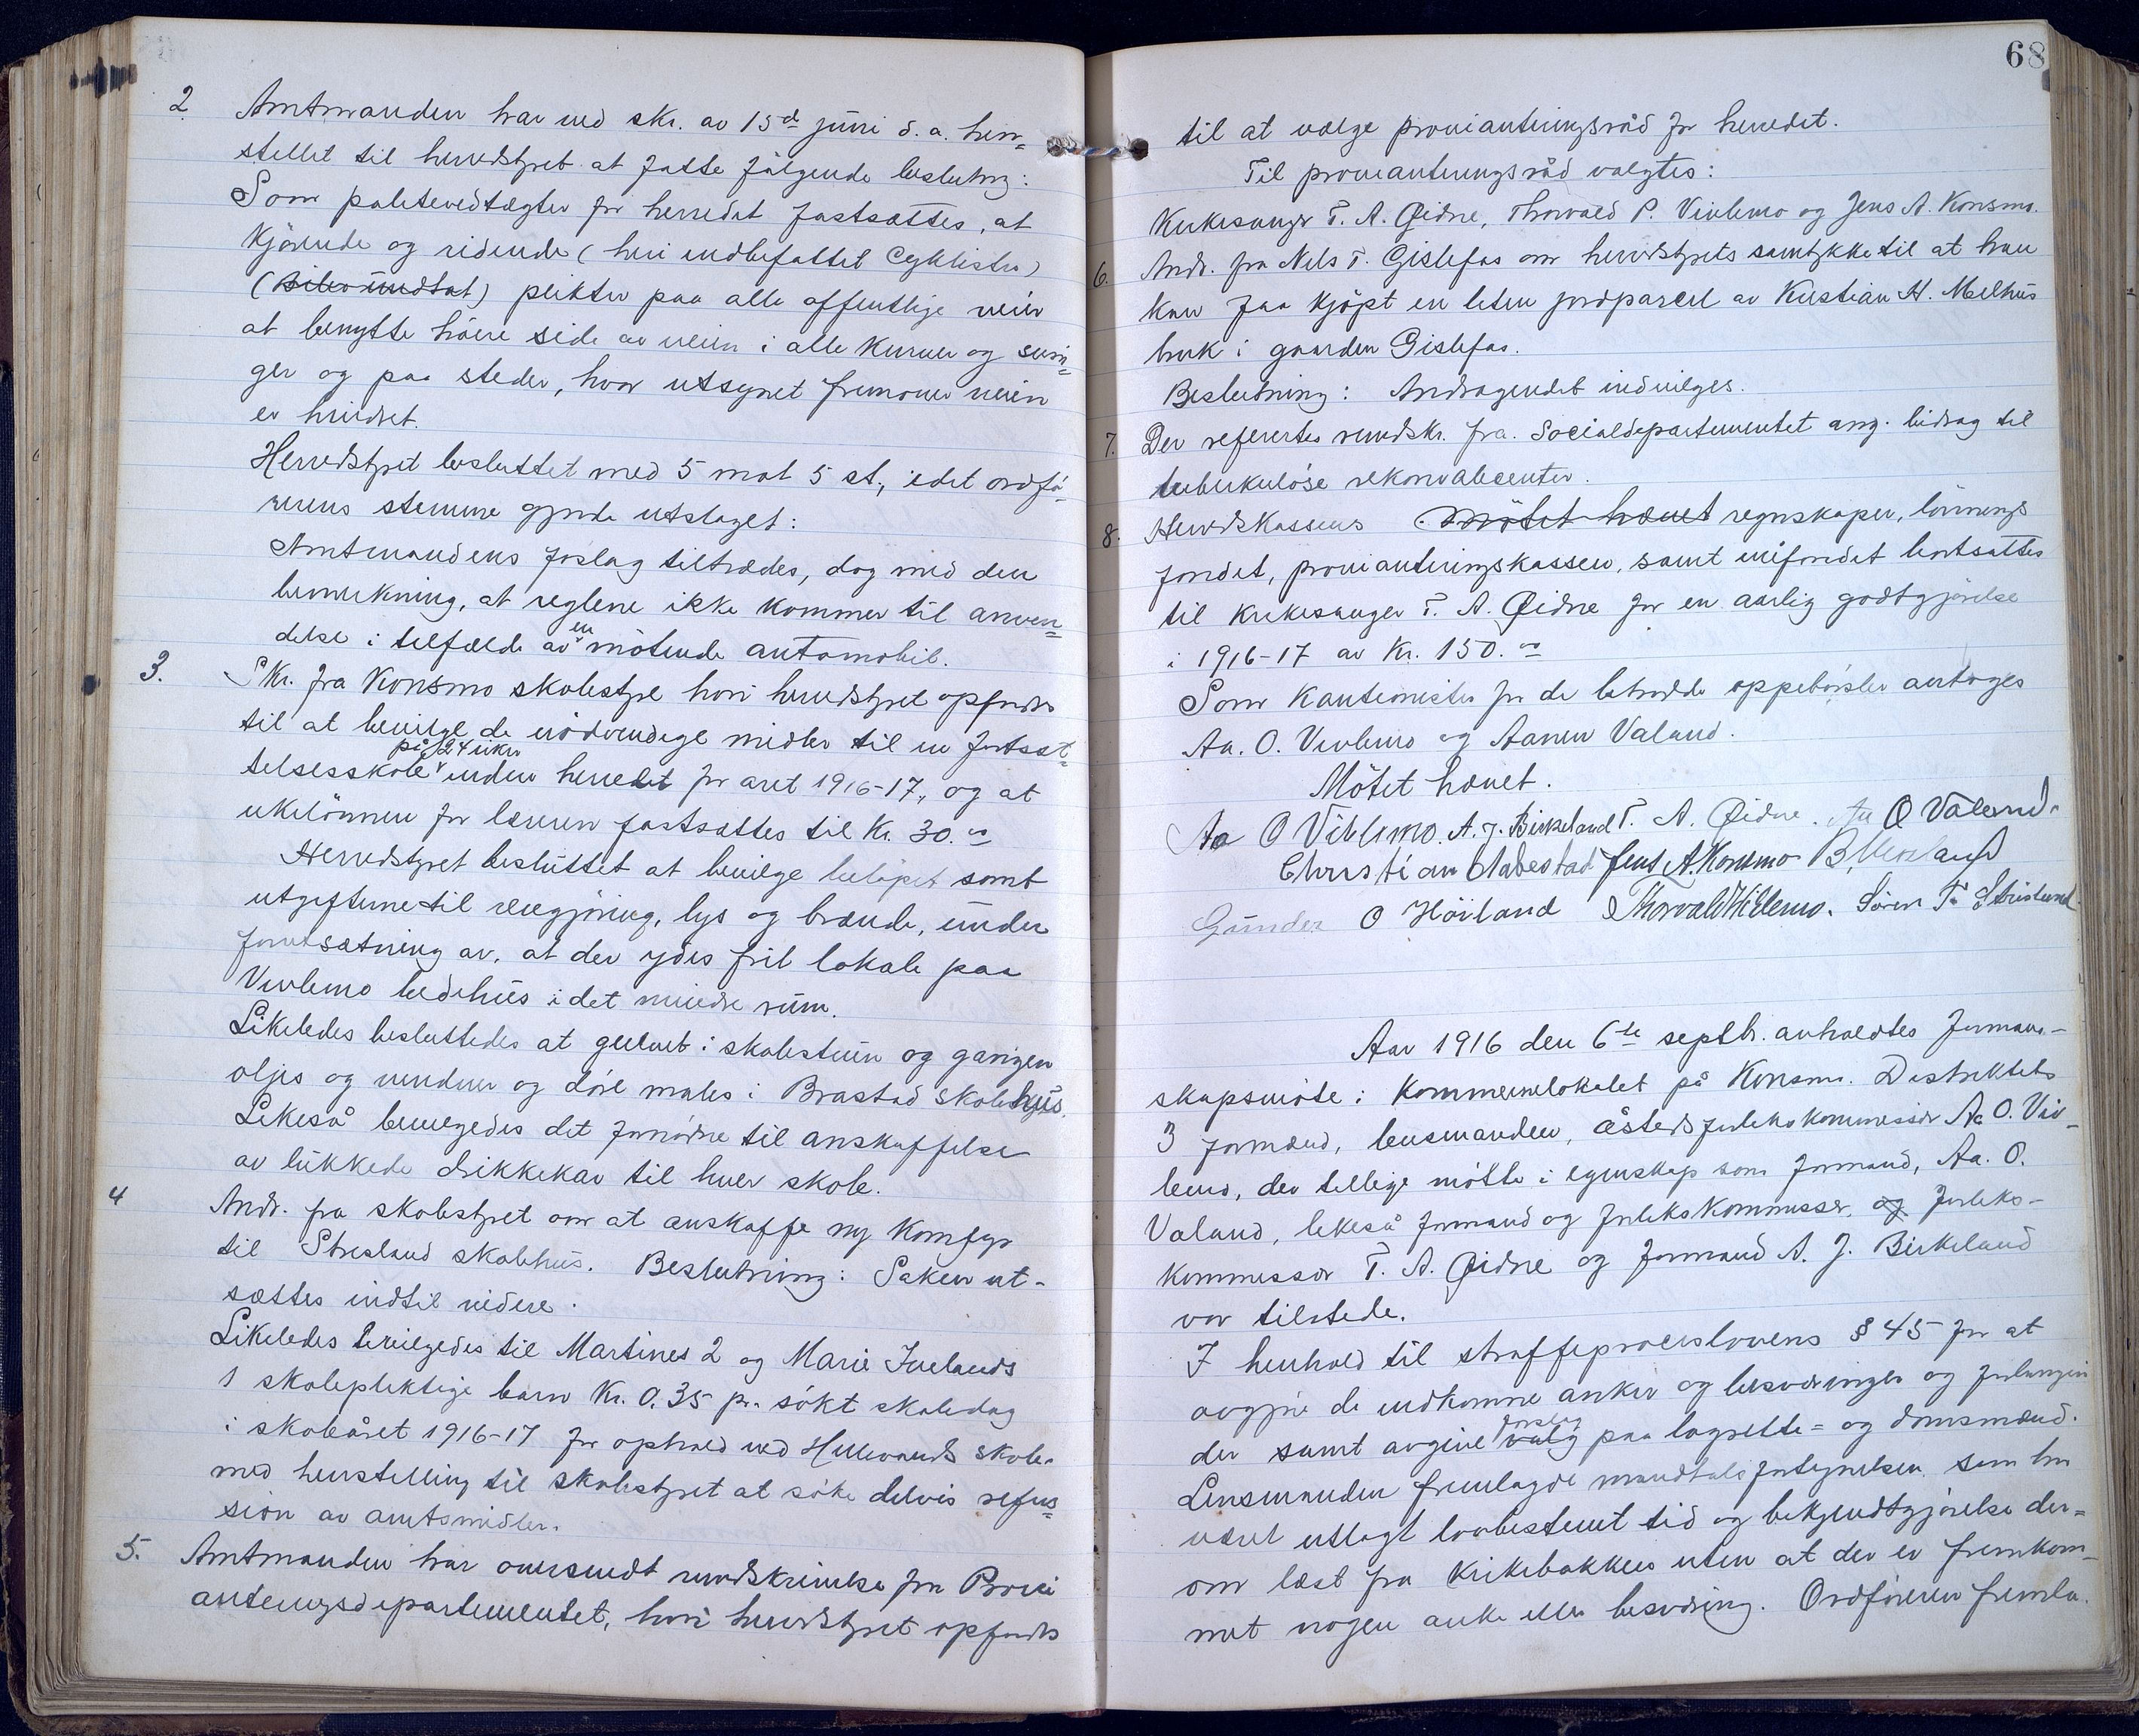 2 Amtmanden har ved skr. av 15de juni d. a. hen=
stillet til herredstyret at fatte følgende beslutng:
Som politivedtægter for herredet fastsættes, at
kjørende og ridende (heri indbefattet cyklister)
(biler undtat) plikter paa alle offentlige veier
at benytte høire side av veien i alle kurver og svin=
ger og paa steder, hvor utsynet fremover veien
er hindret.
Herredstyret besluttet med 5 mot 5 st., idet ordfø=
rerens stemme gjorde utslaget:
Amtmandens forslag tiltrædes, dog med den
bemerkning, at reglene ikke kommer til anven=
delse i tilfælde av en møtende automobil.
3. Skr. fra Konsmo skolestyre hvori herredstyret opfordres
til at bevilge de nödvendige midler til en fortsæt=
på 24 uker
telsesskole inden herredet for aret 1916-17, og at
ukelönnen for læreren fastsættes til Kr. 30.00
Herredstyret besluttet at bevilge beløpet samt
utgifterne til rengjöring, lys og brænde, under
forutsætning av, at der ydes frit lokale paa
Vivlemo bedehus i det mindre rum.
Likeledes besluttedes at gulvet i skolestuen og gangen
oljes og vinduer og döre males i Brastad skolehus.
Likeså bevilgedes det fornödne til anskaffelse
av lukkede drikkekar til hver skole.
4 Andr. fra skolestyret om at anskaffe ny komfyr
til Stresland skolehus. Beslutning: Saken ut-
sættes indtil videre.
Likeledes bevilgedes til Martines 2 og Marie Ivelands
1 skolepliktige barn Kr. 0.35 pr. sökt skoledag
i skoleåret 1916-17 for ophold ved Hillevands skole.
med henstilling til skolestyret at söke delvis refus=
sion av amtsmidler.
5. Amtmanden har oversendt rundskrivelse fra Provi
anteringsdepartementet, hvori herredstyret opfordres
68
til at vælge provianteringsråd for herredet.
Til provianteringsråd valgtes:
Kirkesanger T. A. Øidne, Thorvald P. Vivlemo og Jens A. Konsmo.
6. Andr. fra Nels T. Gislefos om herredstyrets samtykke til at han
kan faa kjöpt en liten jordparcel av Kristian H. Melhus
bruk i gaarden Gislefos.
Beslutning: Andragendet indvilges.
7. Der refertes rundskr. fra Socialdepartementet ang. bidrag til
tuberkulöse rekonvalecenter.
8. Herredskassens Mötet hævet regnskaper, lönnings
fondet, provianteringskassen, samt veifondet bortsattes
til kirkesanger T. A. Øidne for en aarlig godtgjörelse
i 1916-17 av Kr. 150.00
Som kautionister for de betrodde oppebörsler antoges
Aa. O. Vivlemo og Aanen Valand.
Mötet hævet.
Aa O Vivlemo. A. J. Birkeland T. A. Øidne. Aa O Valand.
Christian Aabestad Jens A. Konsmo
Gunder O Höiland Thorvald Vivlemo. Sören T.
Aar 1916 den 6te septbr. avholdtes formand-
skapsmöte i kommunelokalet på Konsmo. Distriktets
3 formænd, lensmanden, åsteds forlikskommissær Aa O. Viv-
lemo, der tillige mötte i egenskap som formand, Aa. O.
Valand, likeså formand og forlikskommissær, og forliks-
kommissær T. A. Øidne og formand A. J. Birkeland
var tilstede.
I henhold til straffeproceslovens § 45 for at
avgjöre de indkomne anker og besværinger og forlangen
der samt avgive forslag valg paa lagrette= og domsmænd.
Lensmanden fremlagde mandtalsfortegnelsen som har
været utlagt lovbestemt tid og bekjendtgjörelse der=
om læst fra kirkebakken uten at der er fremkom-
met nogen anke eller besværing. Ordföreren fremla.